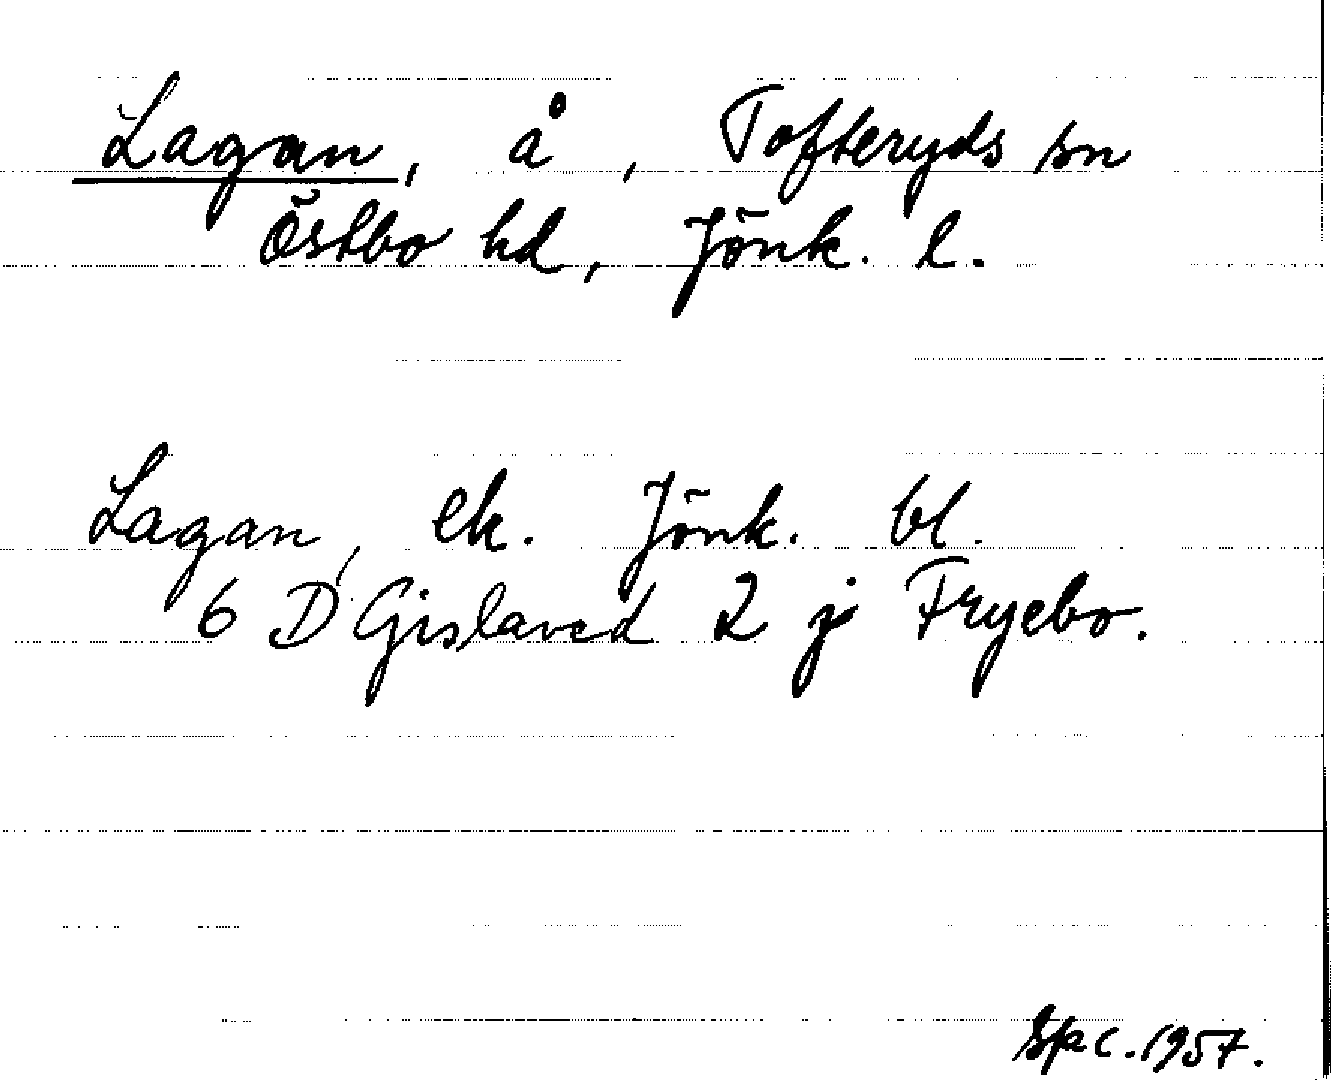 Lagan, å, Tofteryds sn
Östbo hd, Jönk. l.
Lagan, ek. Jönk. bl.
6 D Gislaved 2 j Fryebo.
Spc. 1957.